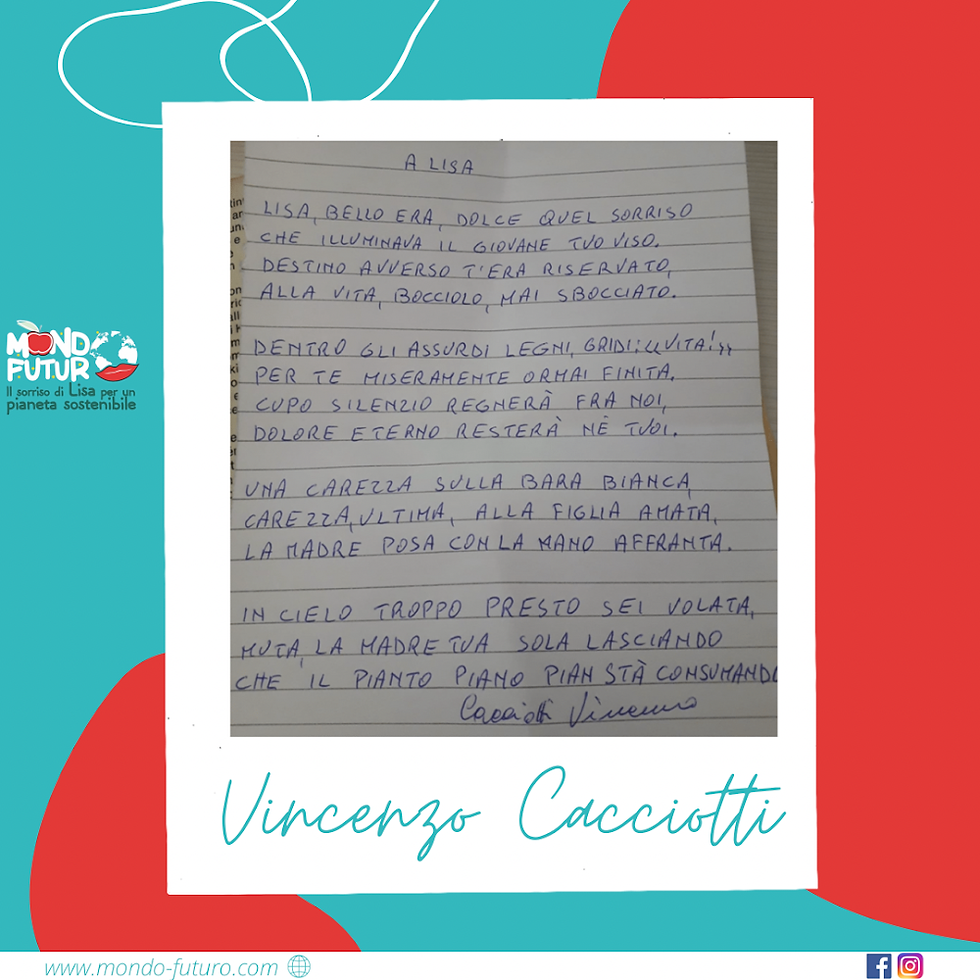 A LISA
LISA, BELLO ERA, DOLCE QUEL SORRISO
CHE ILLUMINAVA IL GIOVANE TUO VISO.
DESTINO AVVERSO T'ERA RISERVATO,
ALLA VITA, BOCCIOLO, MAI SBOCCIATO.
DENTRO GLI ASSURDI LEGNI, GRIDI: "VITA!"
PER TE MISERAMENTE ORMAI FINITA.
CUPO SILENZIO REGNERÀ FRA NOI,
DOLORE ETERNO RESTERÀ NÈ TUOI.
UNA CAREZZA SULLA BARA BIANCA,
CAREZZA, ULTIMA, ALLA FIGLIA AMATA,
LA MADRE POSA CON LA MANO AFFRANTA.
IN CIELO TROPPO PRESTO SEI VOLATA,
MUTA, LA MADRE TUA SOLA LASCIANDO
CHE IL PIANTO PIANO PIAN STÀ CONSUMANDO
Cacciotti Vincenzo
MONDO
FUTURO
Il sorriso di Lisa per un
pianeta sostenibile
Vincenzo Cacciotti
www.mondo-futuro.com